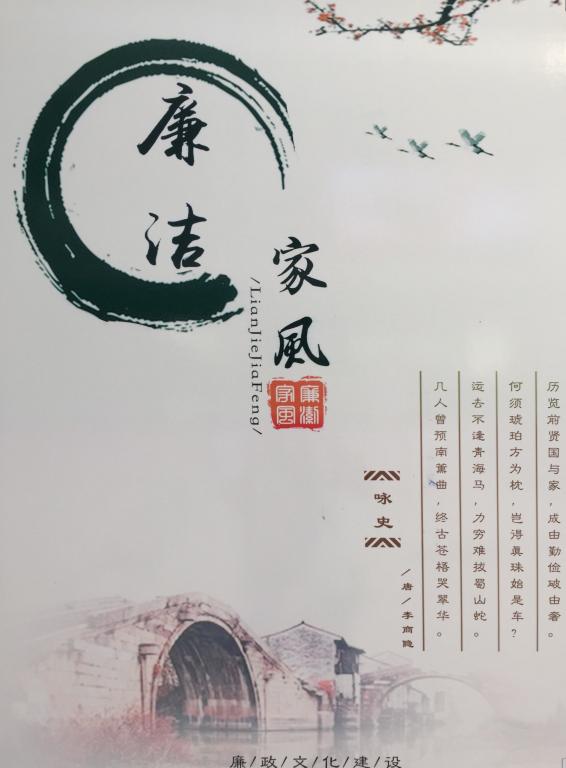 廉洁
家風
/LianJieJiaFeng/
廉洁
家风
历览前贤国与家，成由勤俭破由奢。
何须琥珀方为枕，岂得真珠始是车？
运去不逢青海马，力穷难拔蜀山蛇。
几人曾预南薰曲，终古苍梧哭翠华。
咏史
/唐/李商隐
廉/政/文/化/建/设